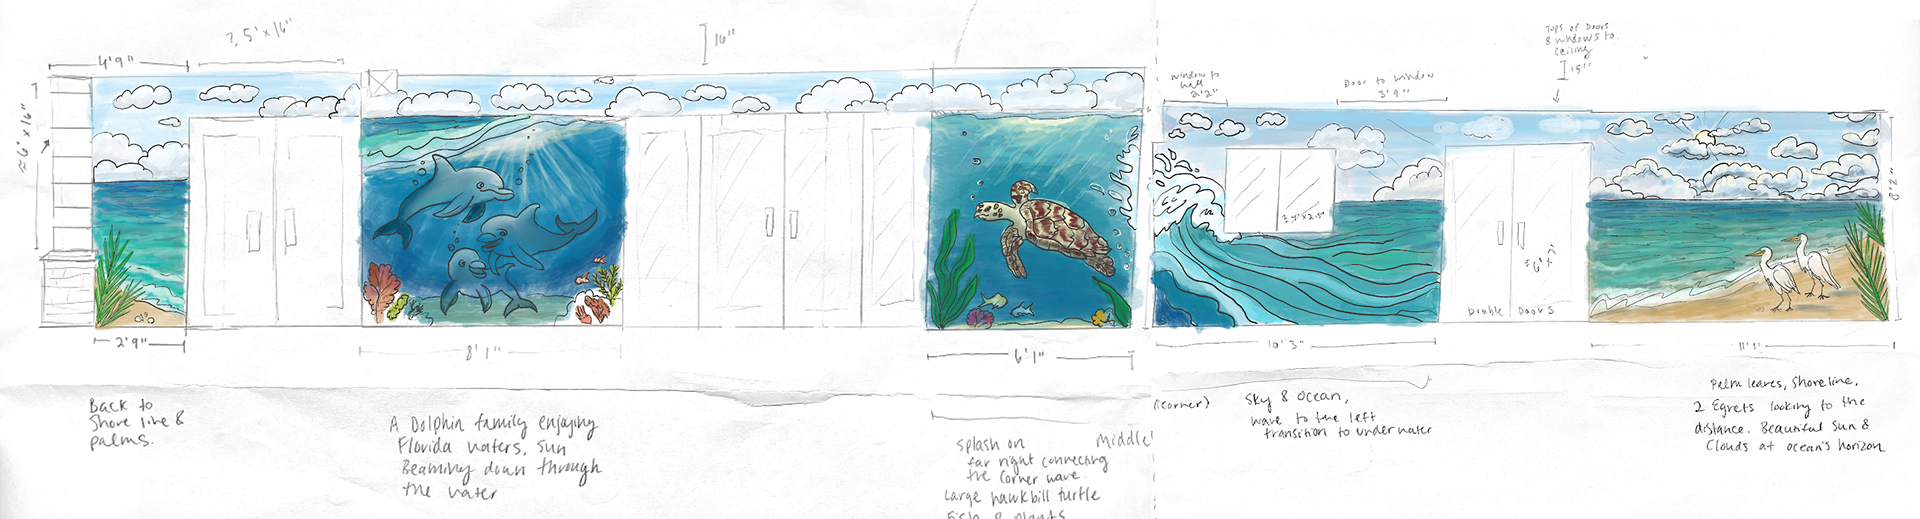 4'9"
16"
Tops of Doors
& windows to
ceiling
15"
window to
wall
2'2"
Door to window
3'9"
8'2"
Double Doors
2'9"
8'1"
6'1"
10'3"
11'1"
Back to
Shore line &
palms.
A Dolphin family enjoying
Florida waters, sun
Beaming down through
the water
splash on
far right connecting
the corner wave.
Large hawkbill turtle
Fish & plants
Middle
(corner)
Sky & Ocean,
wave to the left
transition to underwater
Palm leaves, Shoreline,
2 Egrets looking to the
distance. Beautiful Sun &
Clouds at ocean's horizon